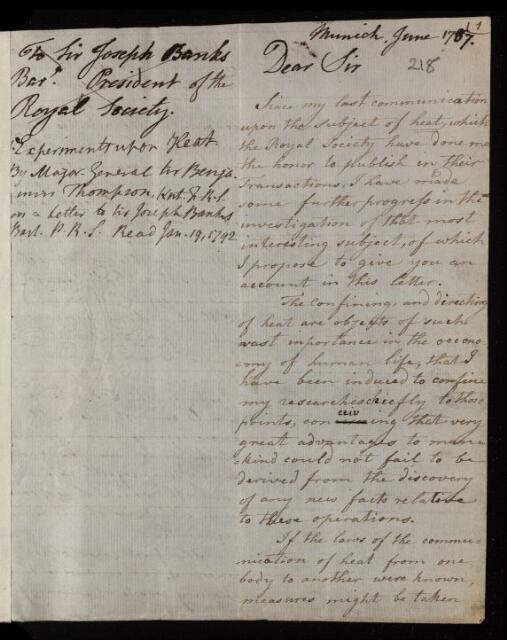 To Sir Joseph Banks
Bart. President of the
Royal Society.
Experiments upon Heat
By Major-General Sir Benja-
min Thompson, Knt. F.R.S.
in a Letter to Sir Joseph Banks
Bart. P.R.S. Read Jan. 19, 1792
Munich, June 1787.
Dear Sir
218
Since my last communication
upon the subject of heat, which
the Royal Society have done me
the honor to publish in their
Transactions, I have made
some further progress in the
investigation of that most
interesting subject, of which
I propose to give you an
account in this letter.
The confining, and directing
of heat are objects of such
vast importance in the oecono-
my of human life, that I
have been induced to confine
my researches chiefly to those
points, conceiving that very
great advantages to man-
kind could not fail to be
derived from the discovery
of any new facts relative
to these operations.
If the laws of the commu-
nication of heat from one
body to another were known,
measures might be taken